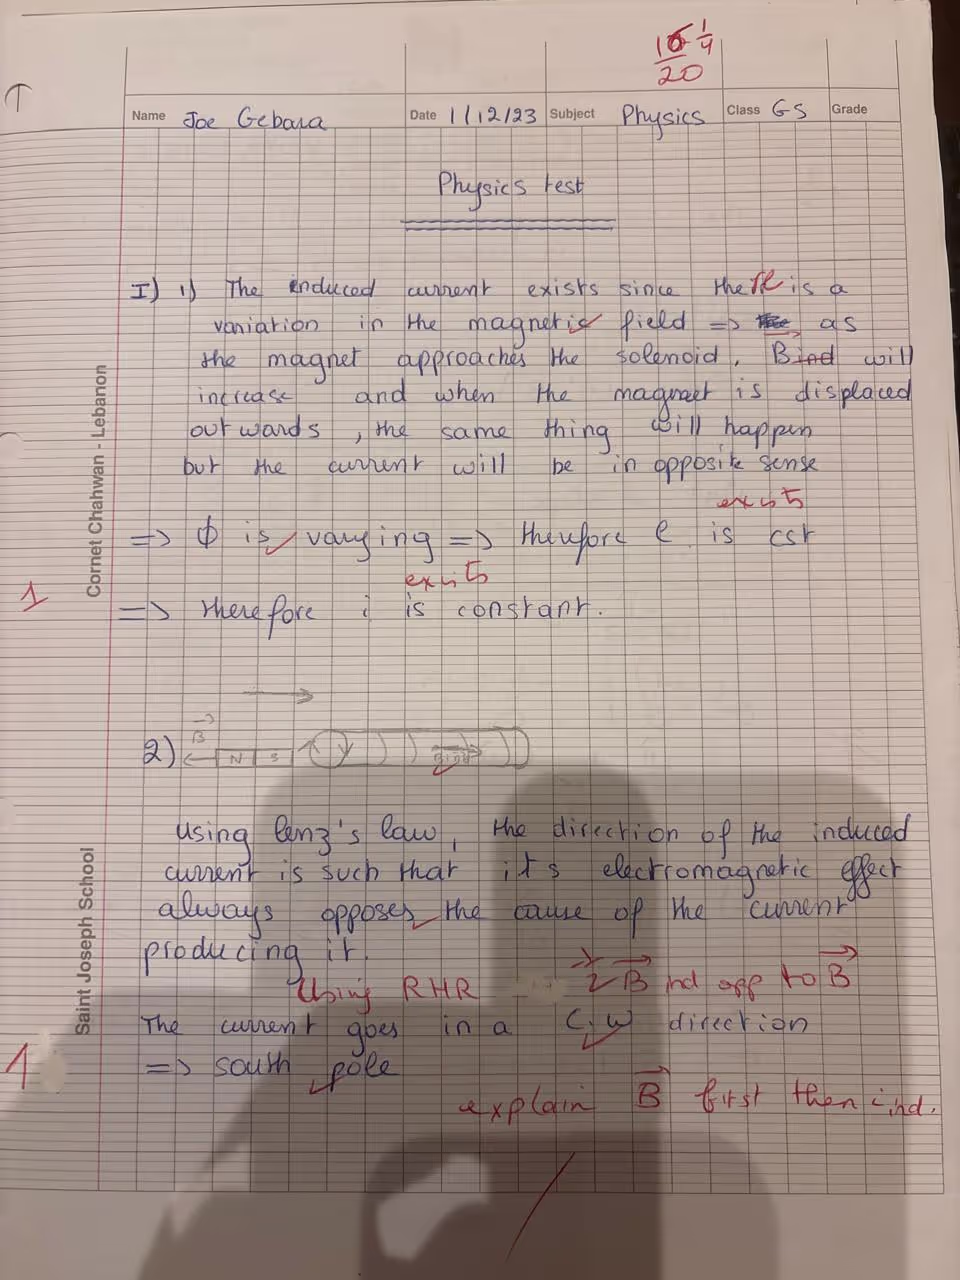 16 1/4
20
Name Joe Gebara Date 1/12/23 Subject Physics Class GS Grade
Physics test
I) 1) The induced current exists since there is a
variation in the magnetic field => as
the magnet approaches the solenoid, Bind will
increase and when the magnet is displaced
outwards, the same thing will happen
but the current will be in opposite sense
exists
=> ϕ is varying => therefore e is cst
exists
1
=> therefore i is constant.
Cornet Chahwan - Lebanon
B
2) N S Bind
Using lenz's law, the direction of the induced
current is such that it's electromagnetic effect
always opposes the cause of the current
producing it.
Using RHR B ind opp to B
The current goes in a C.W direction
1
=> south pole
explain B first then ind.
Saint Joseph School